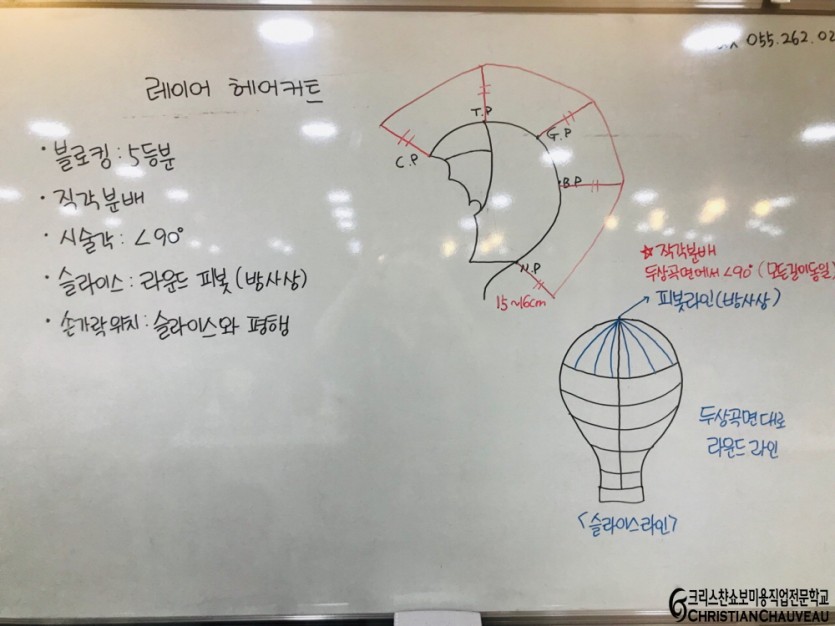 055.262.02
레이어 헤어커트
· 블로킹 : 5등분
· 직각분배
· 시술각 : <90°
· 슬라이스 : 라운드 피봇 (방사상)
· 손가락위치 : 슬라이스와 평행
T.P
G.P
C.P
B.P
N.P
15~16cm
☆ 직각분배
두상곡면에서 <90° (모든길이동일)
피봇라인 (방사상)
두상곡면대로
라운드 라인
<슬라이스라인>
크리스찬쇼보미용직업전문학교
CHRISTIANCHAUVEAU